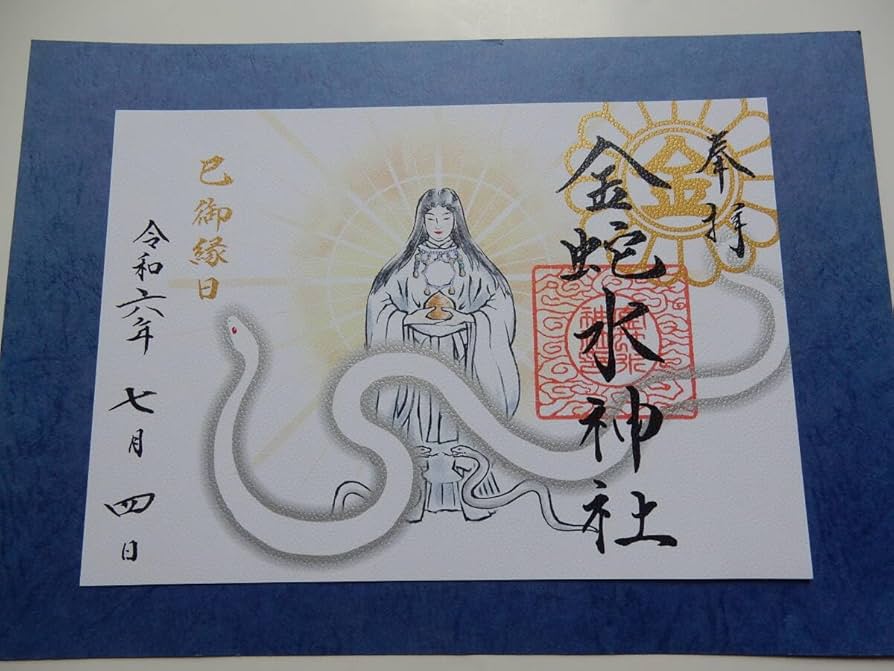 奉拝
金
金蛇水神社
巳御縁日
令和六年 七月 四日